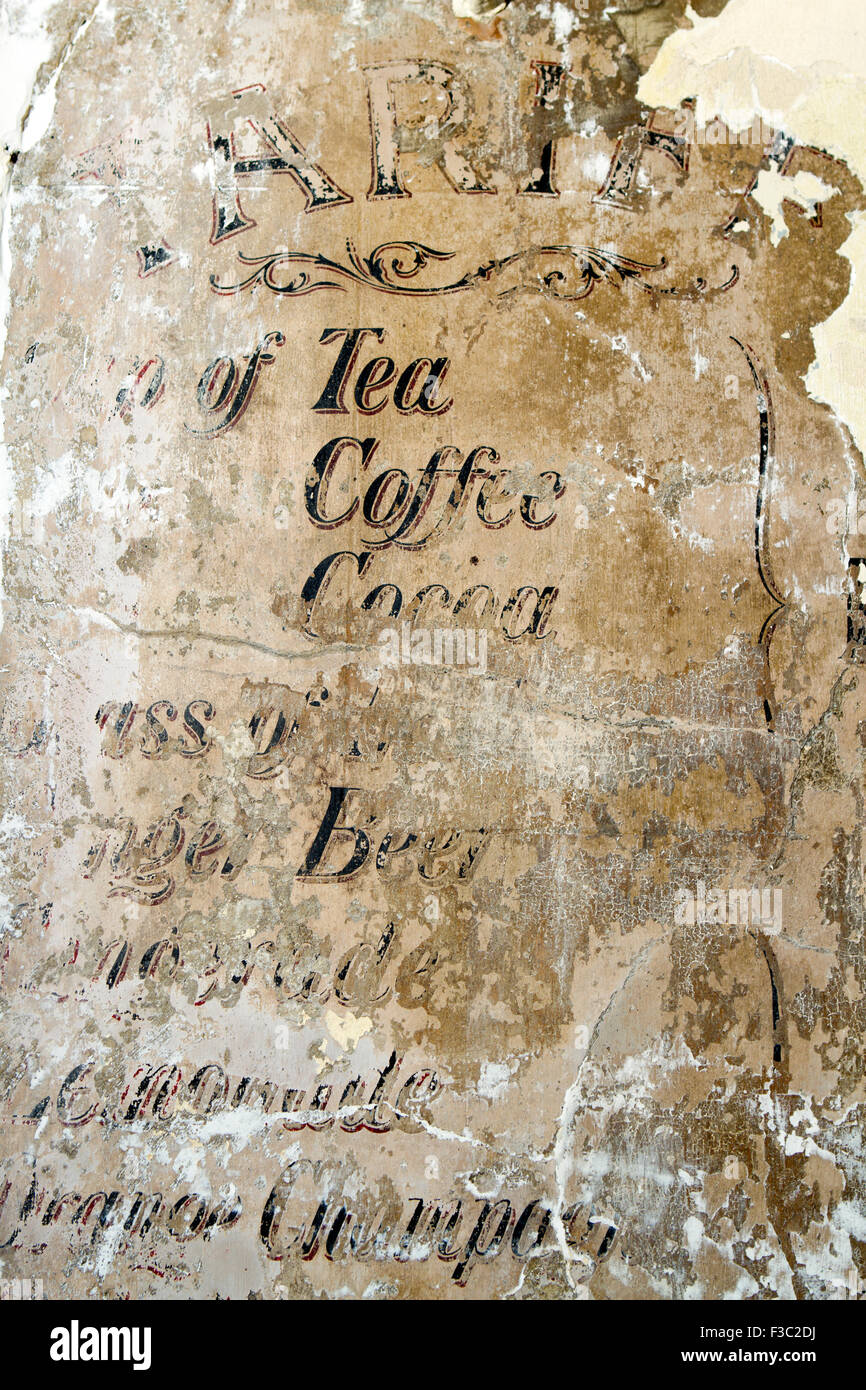 TARIFF
Cup of Tea
Coffee
Cocoa
Glass of
Ginger Beer
Lemonade
Orange Champagn
alamy
Image ID: F3C2DJ
www.alamy.com